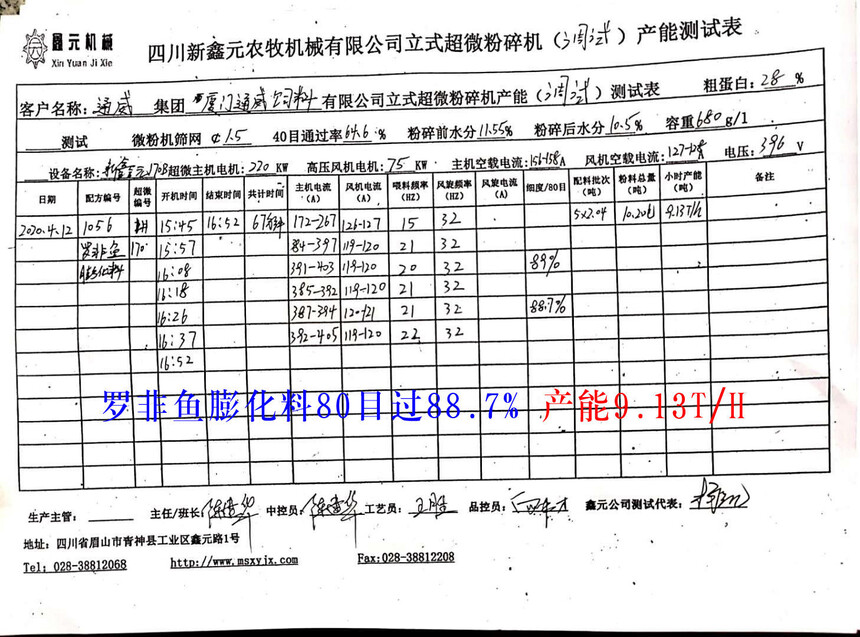 鑫元机械
Xin Yuan Ji Xie
四川新鑫元农牧机械有限公司立式超微粉碎机（调试）产能测试表
客户名称：通威 集团 厦门通威饲料 有限公司立式超微粉碎机产能（调试）测试表 粗蛋白：28 %
测试 微粉机筛网 ¢1.5 40目通过率64.6 % 粉碎前水分11.55% 粉碎后水分10.5% 容重680g/l
设备名称：新鑫元170B超微主机电机：220 KW 高压风机电机：75 KW 主机空载电流：156-158A 风机空载电流：127-128A 电压：396 V
日期 配方编号 超微编号 开机时间 结束时间 共计时间 主机电流(A) 风机电流(A) 喂料频率(HZ) 风旋频率(HZ) 风旋电流(A) 细度/80目 配料批次(吨) 粉料总量(吨) 小时产能(吨) 备注
2020.4.12 1056 15:45 16:52 67分钟 172-267 126-127 15 32 5×2.04 10.20t 9.13T/h
罗非鱼 170 15:57 84-397 119-120 21 32
膨化料 16:08 391-403 119-120 20 32 89%
16:18 385-392 119-120 21 32
16:26 387-394 120-121 21 32 88.7%
16:37 392-405 119-120 22 32
16:52
罗非鱼膨化料80目过88.7% 产能9.13T/H
生产主管： 主任/班长： 中控员： 工艺员： 品控员： 鑫元公司测试代表：
地址：四川省眉山市青神县工业区鑫元路1号
Tel：028-38812068 http://www.msxyjx.com Fax:028-38812208